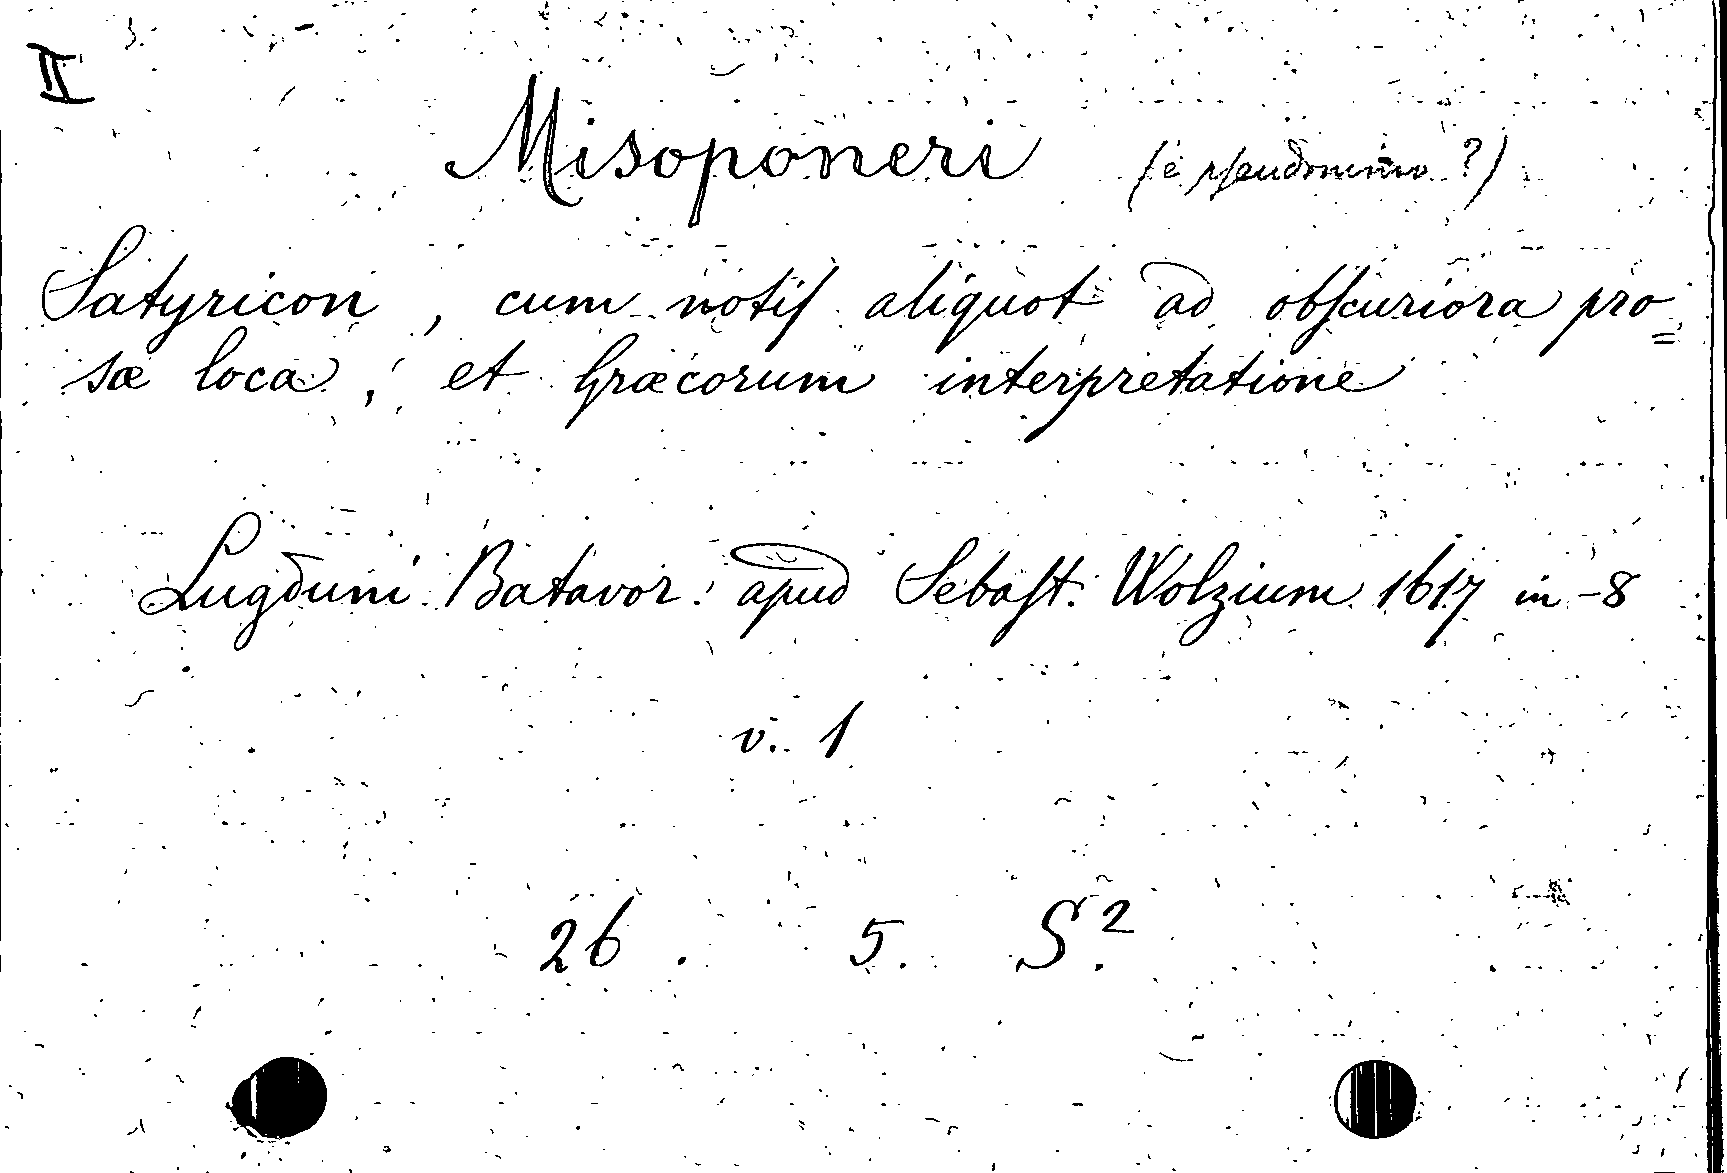 II
Misoponeri (è pseudonimo ?)
Satyricon, cum notis aliquot ad obscuriora pro=
sæ loca, et Græcorum interpretatione
Lugduni Batavor. apud Sebast. Wolzium 1617 in-8
v. 1
26. 5. S².